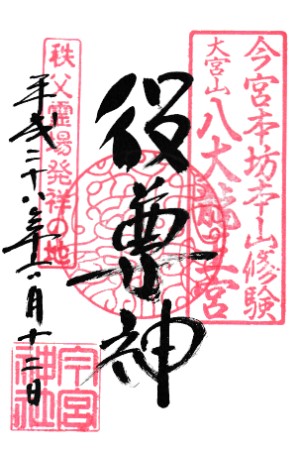 今宮本坊本山修験
大宮山 八大龍王宮
役尊神
秩父霊場発祥之地
平成二十八年十一月十二日
今宮神社